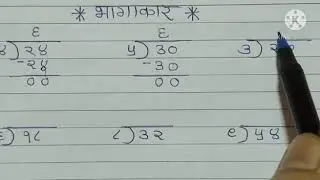 * भागाकार *
६ ६
४) २४ ५) ३० ३) २
-२४ -३०
०० ००
६) १८ ८) ३२ ९) ५४